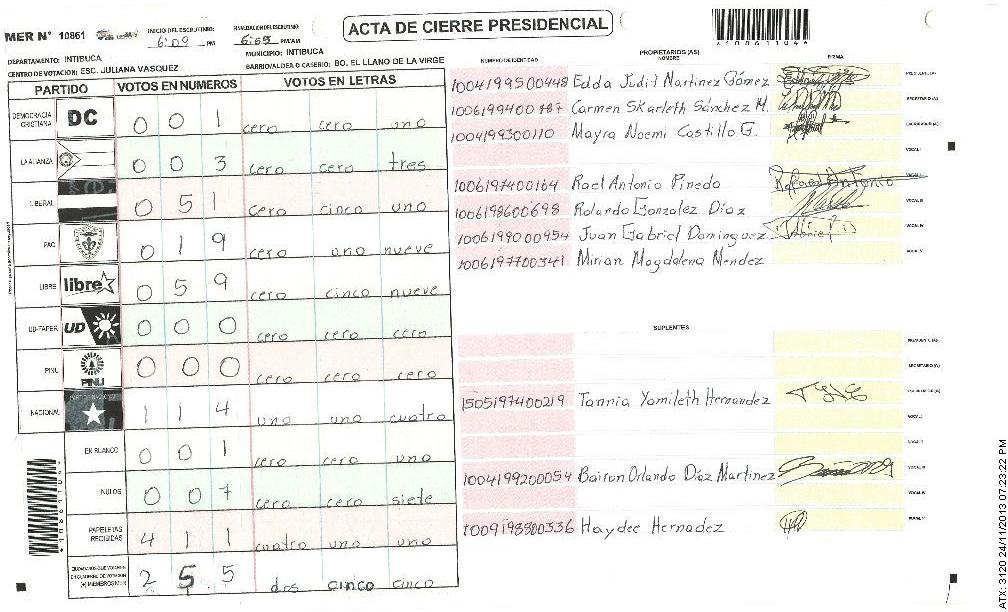 ACTA DE CIERRE PRESIDENCIAL
MER N° 10861
INICIO DEL ESCRUTINIO: 6:09 PM
FINALIZACION DEL ESCRUTINIO: PM/AM
*108611044*
DEPARTAMENTO: INTIBUCA
MUNICIPIO: INTIBUCA
CENTRO DE VOTACION: ESC. JULIANA VASQUEZ
BARRIO/ALDEA O CASERIO: BO. EL LLANO DE LA VIRGE
PARTIDO VOTOS EN NUMEROS VOTOS EN LETRAS
DEMOCRACIA CRISTIANA DC 0 0 1 cero cero uno
LA ALIANZA 0 0 3 cero cero tres
LIBERAL 0 5 1 cero cinco uno
PAC 0 1 9 cero uno nueve
LIBRE libre 0 5 9 cero cinco nueve
UD-FAPER UD 0 0 0 cero cero cero
PINU PINU 0 0 0 cero cero cero
NACIONAL 1 1 4 uno uno cuatro
EN BLANCO 0 0 1 cero cero uno
NULOS 0 0 7 cero cero siete
PAPELETAS RECIBIDAS 4 1 1 cuatro uno uno
2 5 5 dos cinco cinco
PROPIETARIOS (AS)
NUMERO DE IDENTIDAD NOMBRE FIRMA
1004199500448 Edda Judit Martinez Gómez PRESIDENTE (A)
1006199400187 Carmen Skarleth Sánchez M. SECRETARIO (A)
1004199300110 Mayra Noemi Castillo G. ESCRUTADOR (A)
VOCAL I
1006197400164 Rael Antonio Pineda Rafael Antonio VOCAL II
1006198600698 Rolando Gonzalez Díaz VOCAL III
1006199000954 Juan Gabriel Dominguez VOCAL IV
1006197700341 Mirian Magdalena Mendez VOCAL V
SUPLENTES
PRESIDENTE (A)
SECRETARIO (A)
1505197400219 Tannia Yamileth Hernandez ESCRUTADOR (A)
VOCAL I
VOCAL II
1004199200054 Bairon Orlando Díaz Martinez VOCAL III
VOCAL IV
1009198300336 Haydee Hernadez VOCAL V
ATX: 3120 24/11/2013 07:23:22 PM